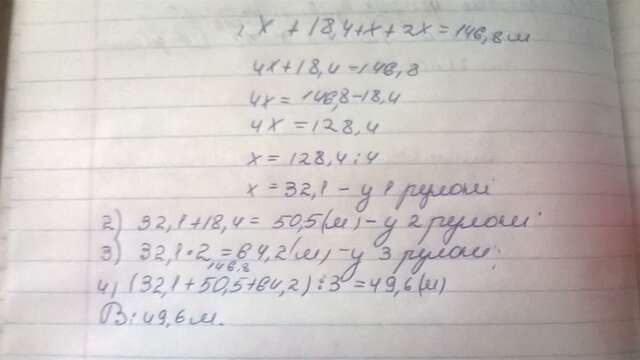 x + 18,4+x + 2x = 146,8 м
4x+18,4=146,8
4x = 146,8-18,4
4x = 128,4
x = 128,4 : 4
x = 32,1 - у 1 рулоні
2) 32,1+18,4 = 50,5(м) - у 2 рулоні
3) 32,1·2 = 64,2(м) - у 3 рулоні;
146,8
4) (32,1+50,5+64,2) : 3 = 49,6(м)
В: 49,6 м.